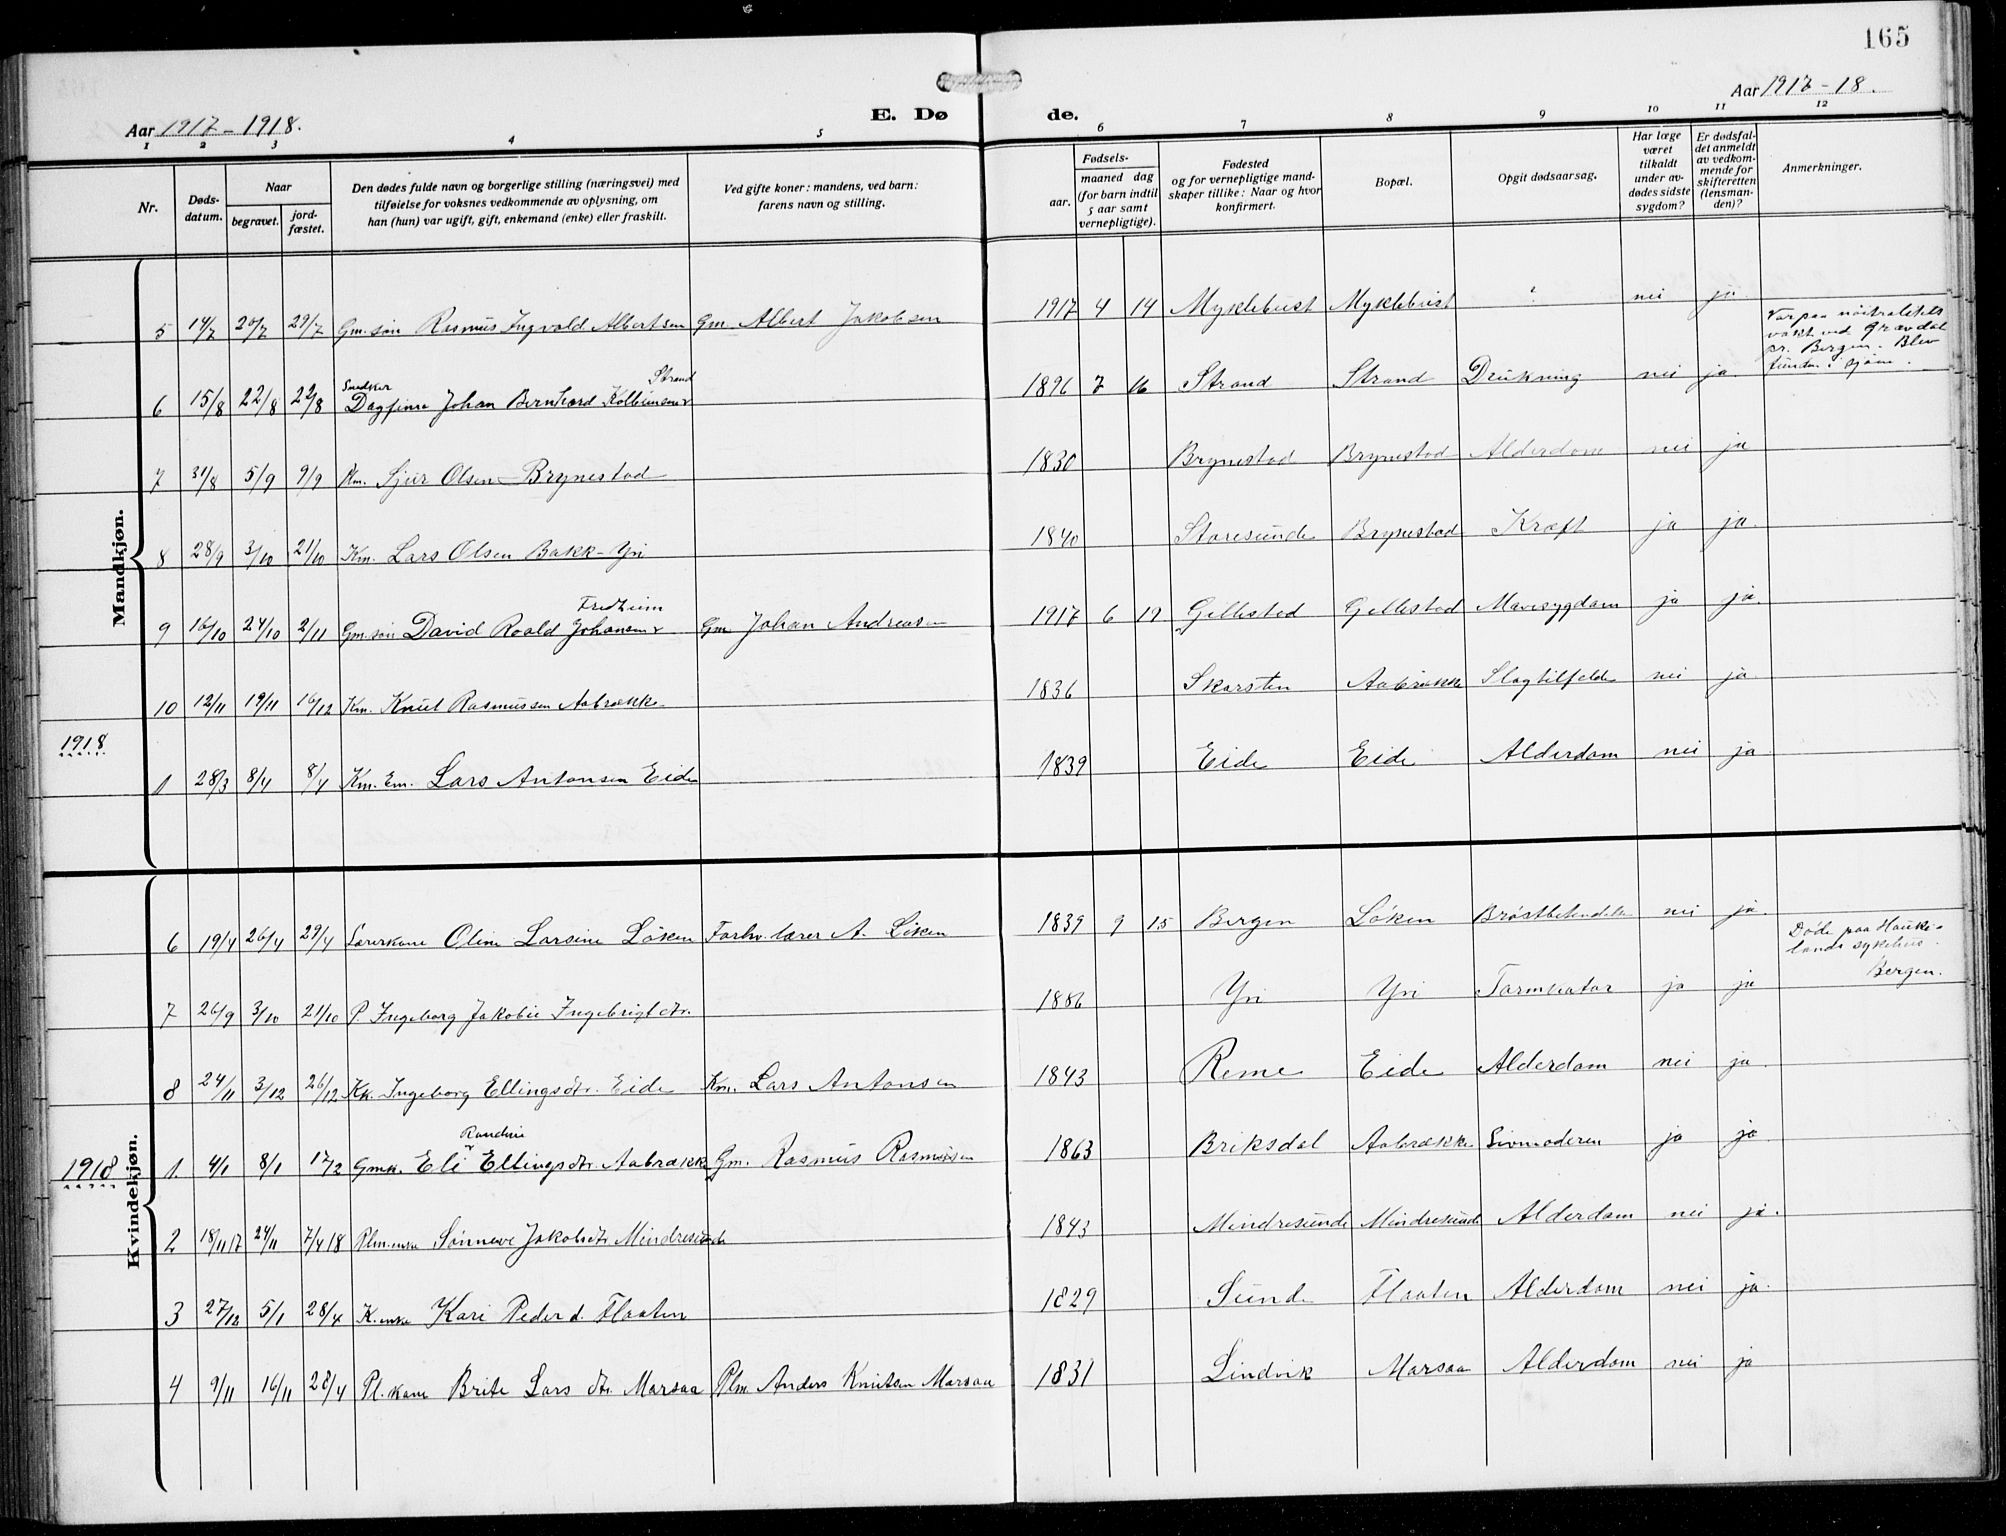 165
Aar 1917-1918.
E. Dø de.
Aar 1917-18.
1 2 3 4 5 6 7 8 9 10 11 12
Nr.
Døds-datum.
Naar
begravet.
jord-fæstet.
Den dødes fulde navn og borgerlige stilling (næringsvei) med
tilføielse for voksnes vedkommende av oplysning, om
han (hun) var ugift, gift, enkemand (enke) eller fraskilt.
Ved gifte koner: mandens, ved barn:
farens navn og stilling.
Fødsels-
aar.
maaned dag
(for barn indtil
5 aar samt
vernepligtige).
Fødested
og for vernepligtige mand-
skaper tillike: Naar og hvor
konfirmert.
Bopæl.
Opgit dødsaarsag.
Har læge
været
tilkaldt
under av-
dødes sidste
sygdom?
Er dødsfal-
det anmeldt
av vedkom-
mende for
skifteretten
(lensman-
den)?
Anmerkninger.
Mandkjøn.
5 14/7 20/7 29/7 Gm. søn Rasmus Ingvald Albertsen Gm. Albert Jakobsen 1917 4 14 Myklebust Myklebust ? nei ja
6 15/8 22/8 29/8 Snedker Dagfinn Johan Bernhard Kolbeinsen Strand 1896 7 16 Strand Strand Drukning nei ja Var paa nøitralitets
vakt ved Gravdal
pr. Bergen. Blev
funden i sjøen.
7 31/8 5/9 9/9 Sjur Olsen Brynestad 1830 Brynestad Brynestad Alderdom nei ja
8 28/9 3/10 21/10 Km. Lars Olsen Bakk-Yri 1840 Staresunde Brynestad Kræft ja ja
9 16/10 24/10 2/11 Gm. søn David Roald Johansen Fredheim Gm Johan Andreasen 1917 6 19 Gillestad Gillestad Mavesygdom ja ja
10 12/11 19/11 16/12 Km. Knut Rasmussen Aabrække 1836 Skarsten Aabrække Slagtilfelde nei ja
1918
1 28/3 8/4 8/4 Km. Em. Lars Antonsen Eide 1839 Eide Eide Alderdom nei ja
Kvindekjøn.
6 19/4 26/4 29/4 Lærerkone Oline Larsine Løken Forhv. lærer A. Løken 1839 9 15 Bergen Løken nei ja
7 26/9 3/10 21/10 P. Ingeborg Jakobie Ingebrigtdtr. 1886 Yri Yri Tarmkatar ja ja Døde paa Hauke-
lands sykehus.
Bergen.
8 24/11 3/12 26/12 Kk. Ingeborg Ellingsdtr. Eide Km. Lars Antonsen 1843 Reme Eide Alderdom nei ja
1918
1. 4/1 8/1 17/2 Gmk. Eli Randine Ellingsdtr. Aabrække Gm. Rasmus Rasmussen 1863 Briksdal Aabrække Livmoderen ja ja
2 18/11 17 24/11 7/4 18 Plm. enke Sønneve Jakobsdtr Mindresunde 1843 Mindresunde Mindresunde Alderdom nei ja.
3 27/12 5/1 28/4 K. enke Kari Pederd. Flaaten 1829 Sunde Flaaten Alderdom nei ja.
4 9/11 16/11 28/4 Pl. kone Brite Lars dtr. Marsaa Plm. Anders Knutsen Marsaa 1831 Lindvik Marsaa Alderdom nei ja